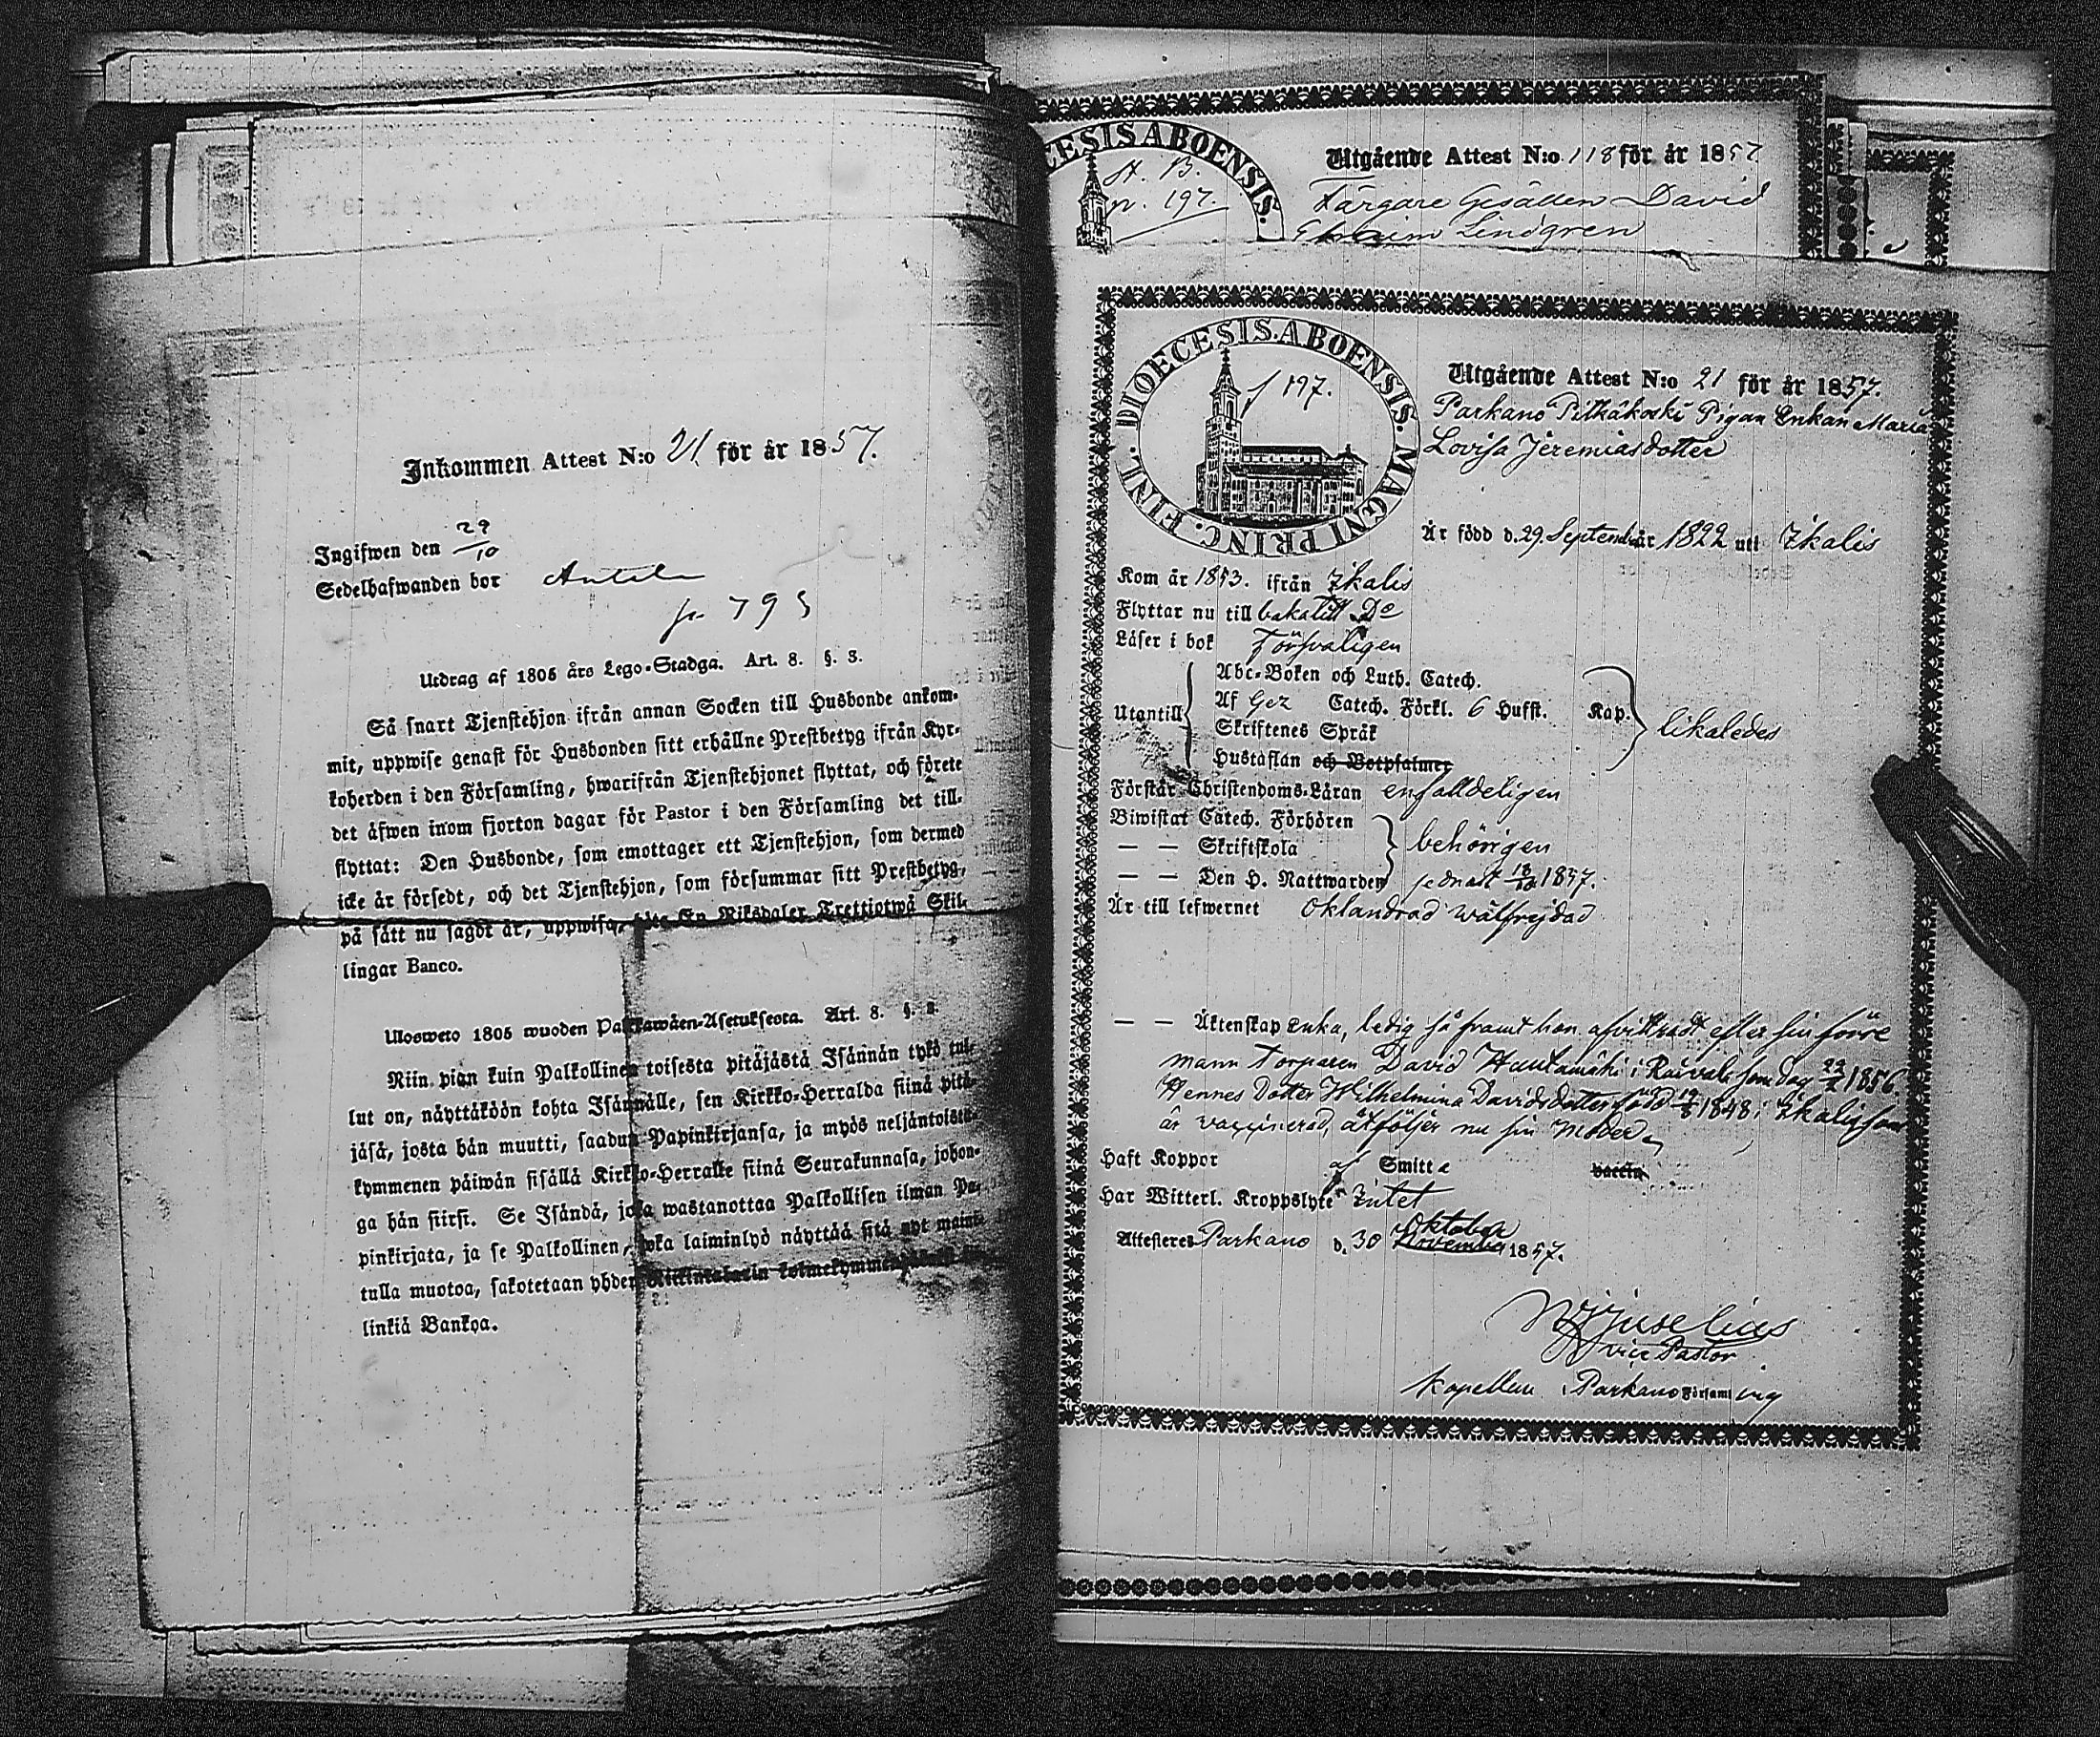 Inkommen Attest N:o 21 för år 1857.
Ingifwen den 29/10
Sedelhafwanden bor Antila
p. 795
Utdrag af 1805 års Lego-Stadga. Art. 8. §. 3.
Så snart Tjenstehjon ifrån annan Socken till Husbonde ankom-
mit, uppwise genast för Husbonden sitt erhållne Prestbetyg ifrån Kyr-
koherden i den Församling, hwarifrån Tjenstehjonet flyttat, och förete
det äfwen inom fjorton dagar för Pastor i den Församling det till-
flyttat: Den Husbonde, som emottager ett Tjenstehjon, som dermed
icke är försedt, och det Tjenstehjon, som försummar sitt Prestbetyg,
på sätt nu sagdt är, uppwisa, böte En Riksdaler Trettiotwå Skil-
lingar Banco.
Ulosweto 1805 wuoden Palkkawäen-Asetuksesta. Art. 8. §. 3.
Niin pian kuin Palkollinen toisesta pitäjästä Isännän tykö tul-
lut on, näyttäköön kohta Isännälle, sen Kirkko-Herralda siinä pitä-
jäsä, josta hän muutti, saadun Papinkirjansa, ja myös neljäntoista-
kymmenen päiwän sisällä Kirkko-Herralle siinä Seurakunnasa, johon-
ga hän siirsi. Se Isändä, joka wastanottaa Palkollisen ilman Pa-
pinkirjata, ja se Palkollinen, joka laiminlyö näyttää sitä nyt mainit-
tulla muotoa, sakotetaan yhden Riikintalarin kolmekymmen
linkiä Bankoa.
CESIS ABOENSIS.
N. 197.
Utgående Attest N:o 118 för år 1857
Färgare Gesällen David
Lindgren
DIOECESIS. ABOENSIS. MAGNI PRINC. FINL.
f 197.
Utgående Attest N:o 21 för år 1857.
Parkano Pitkäkoski Pigan Enkan Maria
Lovisa Jeremiasdotter
Är född d. 29. September år 1822 uti Ikalis
Kom år 1853. ifrån Ikalis
Flyttar nu till baka till Do
Läser i bok Försvarligen
Utantill
Abc-Boken och Luth. Catech.
Af Gez Catech. Förkl. 6 Hufst. Kap.
Skriftenes Språk
Hustaflan och Botpsalmer
likaledes
Förstår Christendoms-Läran enfalldeligen
Biwistat Catech. Förhören
— — Skriftskola
behörigen
— — Den H. Nattwarden sednast 18/10 1857.
Är till lefwernet Oklandrad wälfrejdad
— — Äktenskap Enka, ledig så framt hon afvittrat efter sin förre
mann Torparen David Hautamäki i Raivala som dog 22/2 1856.
Hennes Dotter Wilhelmina Davidsdotter född 19/5 1848 i Ikalis som
är vaccinerad, åtföljer nu sin Moder
Haft Koppor af Smitta vaccin
Har Witterl. Kroppslyte Intet
Attesteres Parkano d. 30 Oktober November 1857.
vice Pastor
Kapellan i Parkano Församling